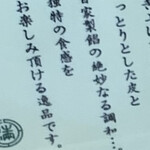 っとりとした皮と
自家製餡の絶妙なる調和…
独特の食感を
お楽しみ頂ける逸品です。